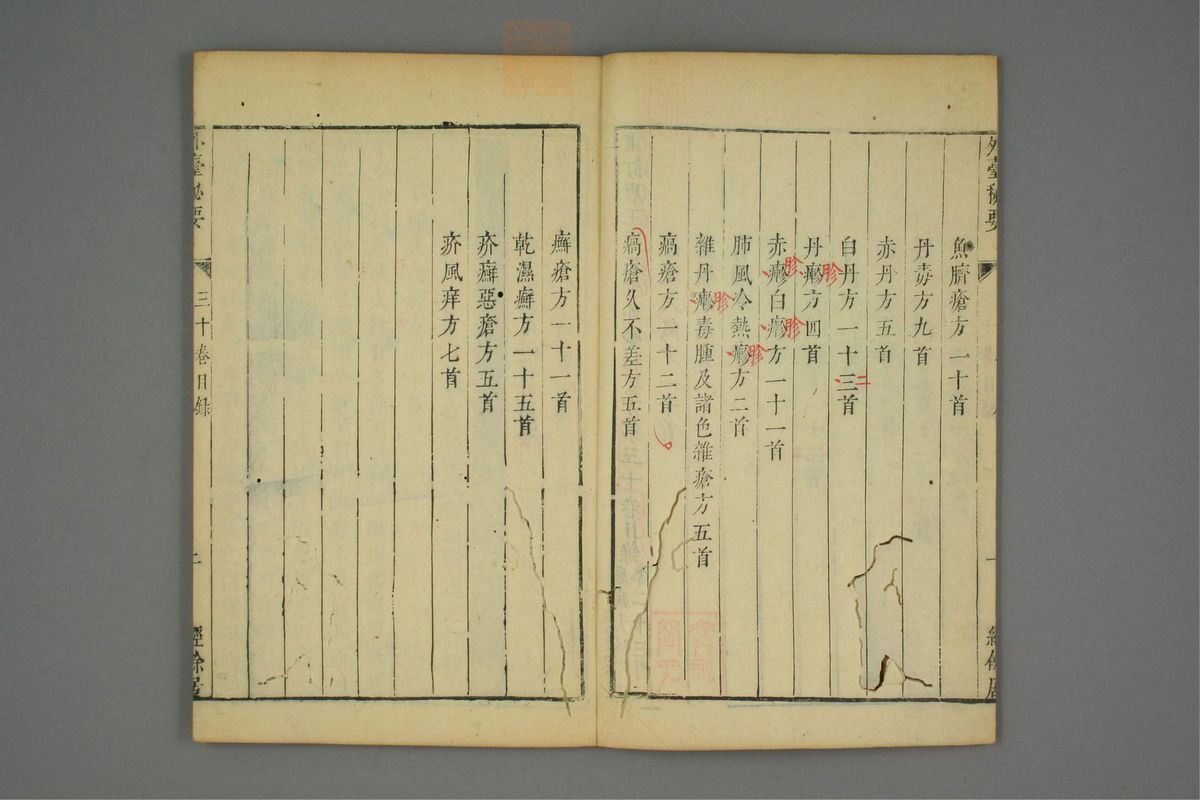 外臺秘要
一
經餘居
魚臍瘡方一十首
丹毒方九首
赤丹方五首
白丹方一十三首
二
丹㿀方四首
胗
赤㿀白㿀方一十一首
胗
胗
肺風冷熱㿀方二首
胗
雜丹㿀毒腫及諸色雜瘡方五首
胗
瘑瘡方一十二首
瘑瘡久不差方五首
癬瘡方一十一首
乾濕癬方一十五首
疥癬惡瘡方五首
疥風痒方七首
外臺秘要
三十卷目録
經餘居